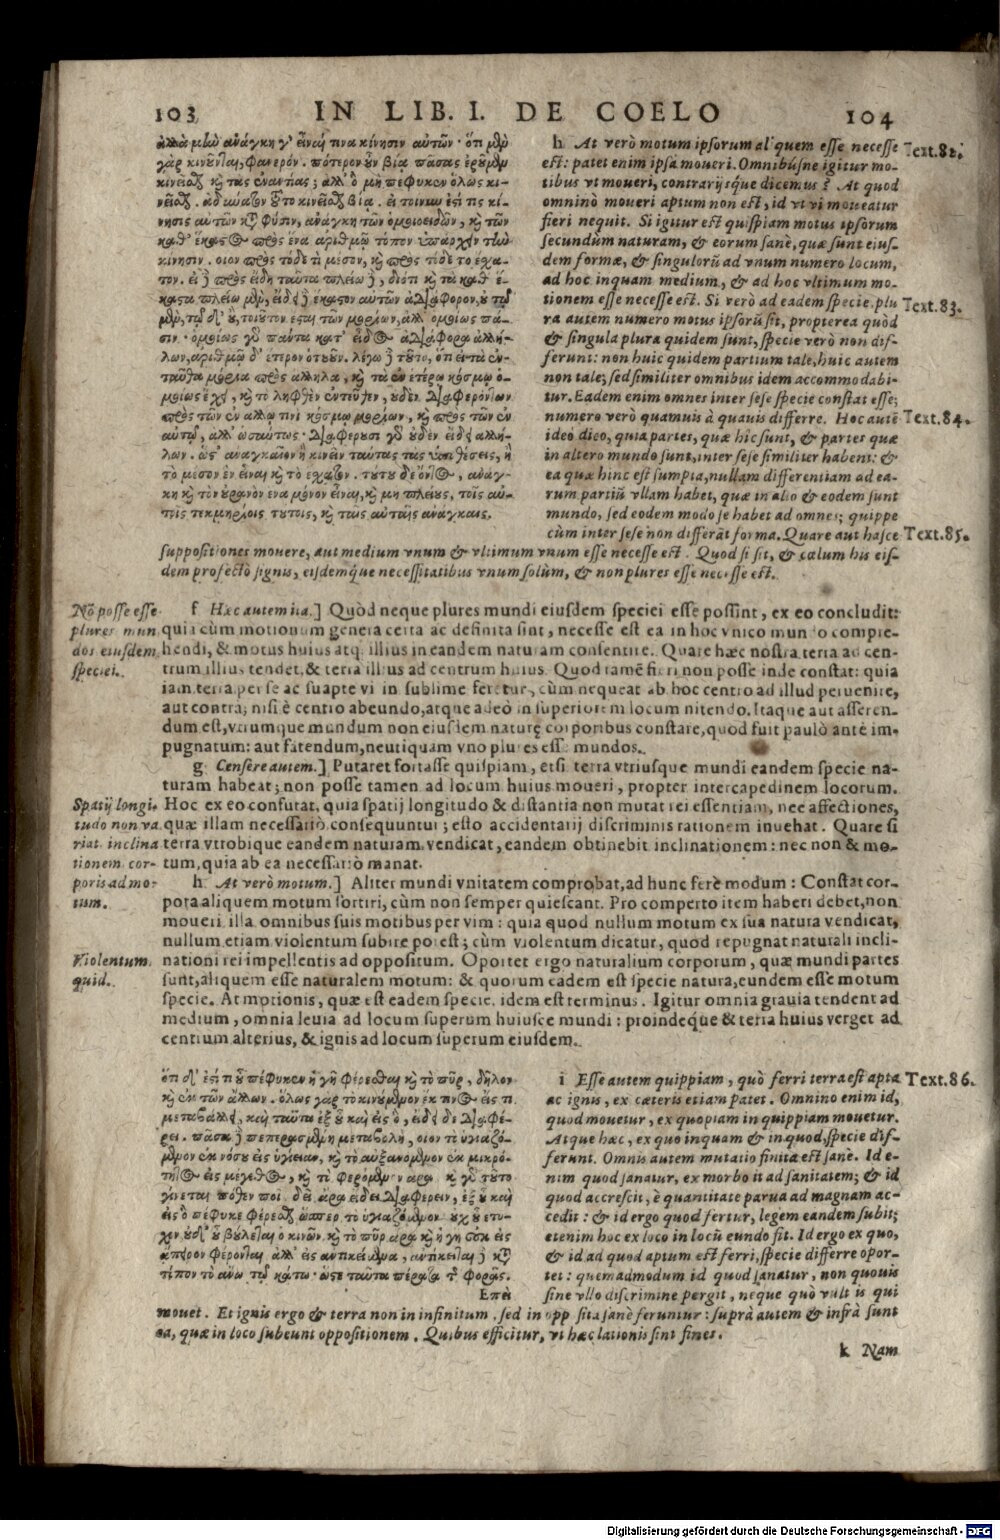 103 IN LIB. I. DE COELO 104
ἀλλὰ μὴν ἀνάγκη γ' εἶναί τινα κίνησιν αὐτῶν· ὅτι μὲν
γὰρ κινοῦνται, φανερόν. πότερον οὖν βίᾳ πάσας ἐροῦμεν
κινεῖσθαι καὶ τὰς ἐναντίας; ἀλλ' ὃ μὴ πέφυκεν ὅλως κι-
νεῖσθαι, ἀδύνατον τοῦτο κινεῖσθαι βίᾳ. εἰ τοίνυν ἐστί τις κί-
νησις αὐτῶν κατὰ φύσιν, ἀνάγκη τῶν ὁμοιοειδῶν, καὶ τῶν
καθ' ἕκαστον πρὸς ἕνα ἀριθμῷ τόπον ὑπάρχειν τὴν
κίνησιν. οἷον πρὸς τόδε τι μέσον, καὶ πρὸς τόδε τὸ ἔσχα-
τον. εἰ δὲ πρὸς εἴδη ταῦτα πλείω δὲ, διότι καὶ τὰ καθ' ἕ-
καστα πλείω μὲν, εἴδει δὲ ἕκαστον αὐτῶν ἀδιάφορον, οὐ τῷ
μὲν, τῷ δ' οὔ, τοιοῦτον ἔσται τῶν μορίων, ἀλλ' ὁμοίως πᾶ-
σιν. ὁμοίως γὰρ πάντα κατ' εἶδος ἀδιάφορα ἀλλή-
λων, ἀριθμῷ δ' ἕτερον ὁτουοῦν. λέγω δὲ τοῦτο, ὅτι εἰ τὰ ἐν-
ταῦθα μόρια πρὸς ἄλληλα, καὶ τὰ ἐν ἑτέρῳ κόσμῳ ὁ-
μοίως ἔχει, καὶ τὸ ληφθὲν ἐντεῦθεν, οὐδὲν διαφερόντως
πρὸς τῶν ἐν ἄλλῳ τινὶ κόσμῳ μορίων, καὶ πρὸς τῶν ἐν
αὐτῷ, ἀλλ' ὡσαύτως· διαφέρουσι γὰρ οὐδὲν εἴδει ἀλλή-
λων. ὥς' ἀναγκαῖον ἢ κινεῖν ταύτας τὰς ὑποθέσεις, ἢ
τὸ μέσον ἓν εἶναι καὶ τὸ ἔσχατον. τούτου δὲ ὄντος, ἀνάγ-
κη καὶ τὸν οὐρανὸν ἕνα μόνον εἶναι, καὶ μὴ πλείους, τοῖς αὐ-
τοῖς τεκμηρίοις τούτοις, καὶ ταῖς αὐταῖς ἀνάγκαις.
h At verò motum ipsorum aliquem esse necesse Text.82.
est: patet enim ipsa moueri. Omnibúsne igitur mo-
tibus vt moueri, contrarijsque dicemus? At quod
omnino moueri aptum non est, id vt vi moueatur
fieri nequit. Si igitur est quispiam motus ipsorum
secundùm naturam, & eorum sanè, quæ sunt eius-
dem formæ, & singulorũ ad vnum numero locum,
ad hoc inquam medium, & ad hoc vltimum mo-
tionem esse necesse est. Si verò ad eadem specie, plu Text.83.
ra autem numero motus ipsorũ sit, propterea quòd
& singula plura quidem sunt, specie verò non dif-
ferunt: non huic quidem partium tale, huic autem
non tale; sed similiter omnibus idem accommodabi-
tur. Eadem enim omnes inter sese specie constat esse;
numero verò quamuis à quauis differre. Hoc autẽ Text.84.
ideò dico, quia partes, quæ hîc sunt, & partes quæ
in altero mundo sunt, inter sese similiter habent: &
ea quæ hinc est sumpta, nullam differentiam ad ea-
rum partiũ vllam habet, quæ in alio & eodem sunt
mundo, sed eodem modo se habet ad omnes; quippe
cùm inter sese non differãt forma. Quare aut hasce Text.85.
suppositiones mouere, aut medium vnum & vltimum vnum esse necesse est. Quod si sit, & cælum his eis-
dem profectò signis, eisdemque necessitatibus vnum solùm, & non plures esse necesse est.
Nõ posse esse plures mundos eiusdem speciei.
f Hæc autem ita.] Quòd neque plures mundi eiusdem speciei esse possint, ex eo concludit:
quia cùm motionum genera certa ac definita sint, necesse est ea in hoc vnico mundo compre-
hendi, & motus huius atq; illius in eandem naturam consentire. Quare hæc nostra terra ad cen-
trum illius tendet, & terra illius ad centrum huius. Quod tamẽ fieri non posse inde constat: quia
iam terra per se ac suapte vi in sublime feretur, cùm nequeat ab hoc centro ad illud peruenire,
aut contrà, nisi è centro abeundo, atque adeò in superiorem locum nitendo. Itaque aut asseren-
dum est, vtrumque mundum non eiusdem naturę corporibus constare, quod fuit paulò antè im-
pugnatum: aut fatendum, neutiquam vno plures esse mundos.
g Censere autem.] Putaret fortasse quispiam, etsi terra vtriusque mundi eandem specie na-
turam habeat; non posse tamen ad locum huius moueri, propter intercapedinem locorum.
Spatij longitudo non variat inclinationem corporis ad motum.
Hoc ex eo confutat, quia spatij longitudo & distantia non mutat rei essentiam, nec affectiones,
quæ illam necessariò consequuntur; esto accidentarij discriminis rationem inuehat. Quare si
terra vtrobique eandem naturam vendicat, eandem obtinebit inclinationem: nec non & mo-
tum, quia ab ea necessariò manat.
h At verò motum.] Aliter mundi vnitatem comprobat, ad hunc ferè modum: Constat cor-
pora aliquem motum sortiri, cùm non semper quiescant. Pro comperto item haberi debet, non
moueri illa omnibus suis motibus per vim: quia quod nullum motum ex sua natura vendicat,
nullum etiam violentum subire potest; cùm violentum dicatur, quod repugnat naturali incli-
Violentum quid.
nationi rei impellentis ad oppositum. Oportet ergo naturalium corporum, quæ mundi partes
sunt, aliquem esse naturalem motum: & quorum eadem est specie natura, eundem esse motum
specie. At motionis, quæ est eadem specie, idem est terminus. Igitur omnia grauia tendent ad
medium, omnia leuia ad locum superum huiusce mundi: proindeque & terra huius verget ad
centrum alterius, & ignis ad locum superum eiusdem.
ὅτι δ' ἔστι ποῦ πέφυκεν ἡ γῆ φέρεσθαι καὶ τὸ πῦρ, δῆλον
καὶ ἐκ τῶν ἄλλων. ὅλως γὰρ τὸ κινούμενον ἔκ τινος εἴς τι
μεταβάλλει, καὶ ταῦτα ἐξ οὗ καὶ εἰς ὃ, εἴδει διαφέ-
ρει. πᾶσα δὲ πεπερασμένη μεταβολή, οἷον τὸ ὑγιαζό-
μενον ἐκ νόσου εἰς ὑγίειαν, καὶ τὸ αὐξανόμενον ἐκ μικρό-
τητος εἰς μέγεθος, καὶ τὸ φερόμενον ἄρα. καὶ γὰρ τοῦτο
γίνεται πόθεν ποῖ. δεῖ ἄρα εἴδει διαφέρειν, ἐξ οὗ καὶ
εἰς ὃ πέφυκε φέρεσθαι ὥσπερ τὸ ὑγιαζόμενον οὐχ οὗ ἔτυ-
χεν οὐδ' οὗ βούλεται ὁ κινῶν. καὶ τὸ πῦρ ἄρα καὶ ἡ γῆ οὐκ εἰς
ἄπειρον φέρονται ἀλλ' εἰς ἀντικείμενα, ἀντίκειται δὲ κατὰ
τόπον τὸ ἄνω τῷ κάτω· ὥστε ταῦτα πέρατα τῆς φορᾶς.
Επεὶ
i Esse autem quippiam, quò ferri terra est apta Text.86.
ac ignis, ex cæteris etiam patet. Omnino enim id,
quod mouetur, ex quopiam in quippiam mouetur.
Atque hæc, ex quo inquam & in quod, specie dif-
ferunt. Omnis autem mutatio finita est sanè. Id e-
nim quod sanatur, ex morbo it ad sanitatem; & id
quod accrescit, è quantitate parua ad magnam ac-
cedit: & id ergo quod fertur, legem eandem subit;
etenim hoc ex loco in locũ eundo sit. Id ergo ex quo,
& id ad quod aptum est ferri, specie differre opor-
tet: quemadmodum id quod sanatur, non quouis
sine vllo discrimine pergit, neque quò vult is qui
mouet. Et ignis ergo & terra non in infinitum, sed in opposita sanè feruntur: suprà autem & infrà sunt
ea, quæ in loco subeunt oppositionem. Quibus efficitur, vt hæc lationis sint fines.
k Nam
Digitalisierung gefördert durch die Deutsche Forschungsgemeinschaft - DFG